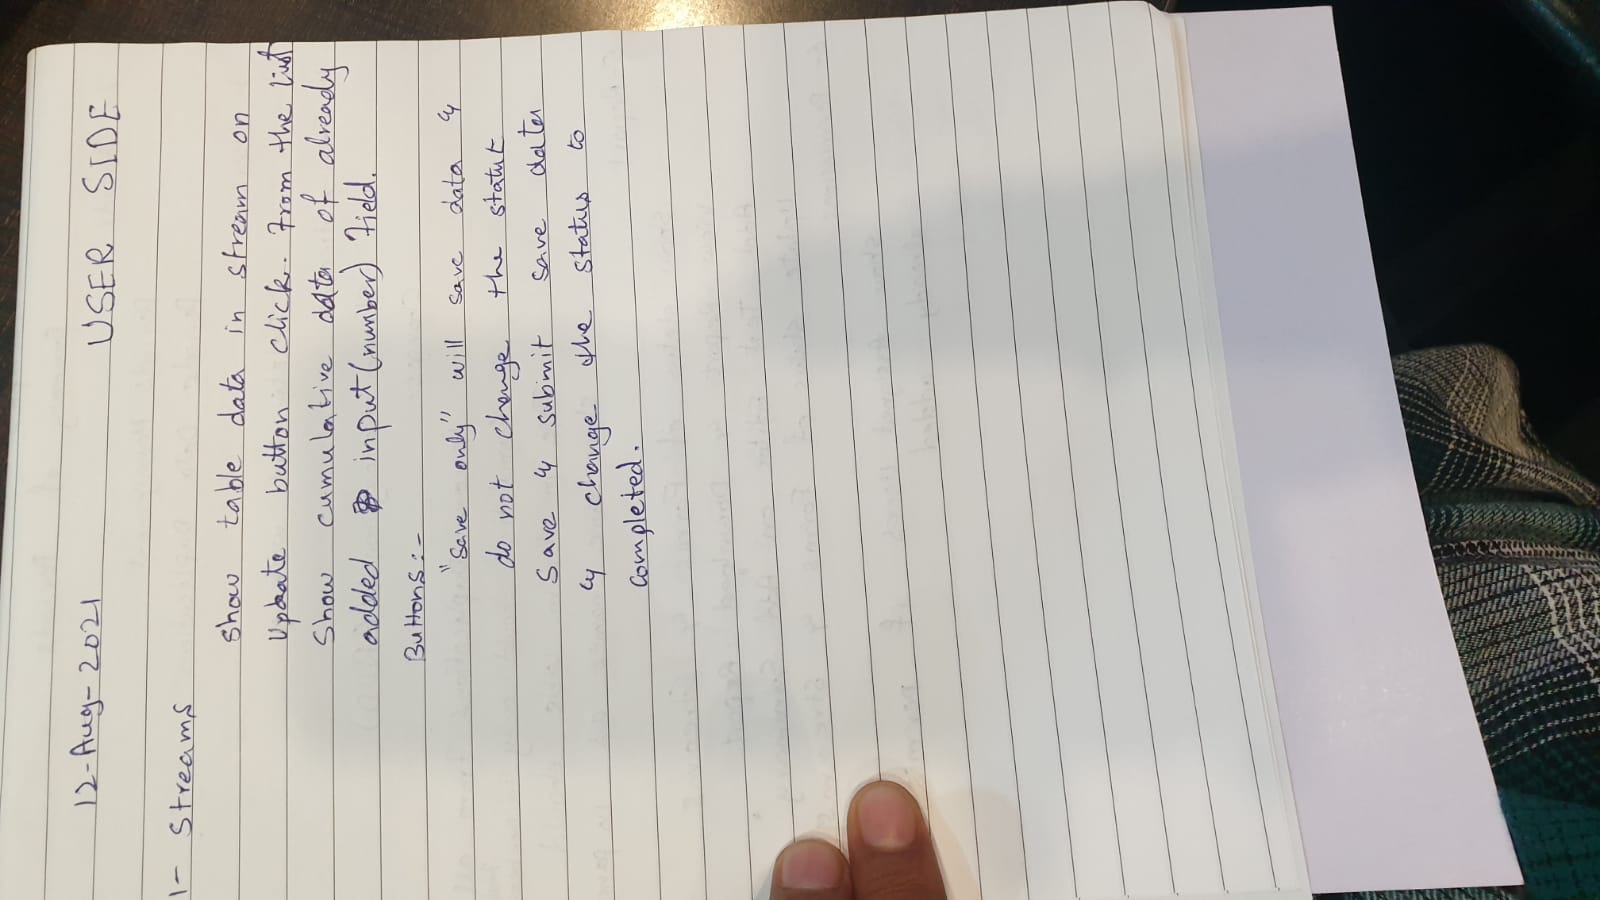 12-Aug-2021 USER SIDE
1- Streams
Show table data in stream on
Update button click. From the list
Show cumulative data of already
added input (number) Field.
Buttons:-
"Save only" will save data &
do not change the statut
Save & submit save data
& change the status to
completed.